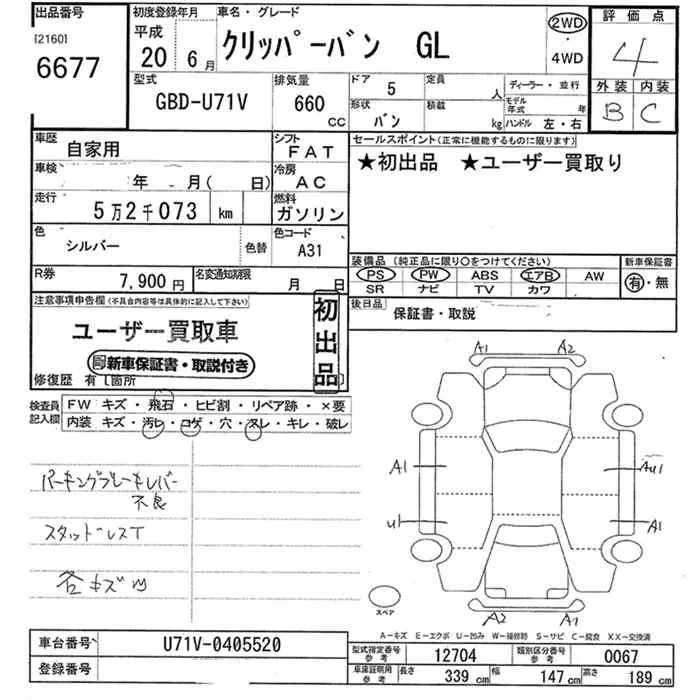 出品番号 初度登録年月 車名・グレード 評価点
[2160] 平成 2WD
6677 20年 6月 クリッパーバン GL ・ 4
4WD
型式 排気量 ドア 5 定員 人 ディーラー・並行 外装 内装
GBD-U71V 660 CC 形状 バン 積載 kg モデル年式 年 B C
ハンドル 左・右
車歴 自家用 シフト FAT セールスポイント(正常に機能するものに限ります)
車検 年 月( 日) 冷房 AC ★初出品 ★ユーザー買取り
走行 5万2千073 km 燃料 ガソリン
色 シルバー 色替 色コード A31
装備品(純正品に限り○をつけてください) 新車保証書
R券 7,900円 名変通知期限 月 日 PS PW ABS エアB AW 有・無
SR ナビ TV カワ
注意事項申告欄(不具合内容等は具体的に記入して下さい) 初出品 後日品 保証書・取説
ユーザー買取車
新車保証書・取説付き
修復歴 有 [箇所
検査員記入欄 FW キズ・飛石・ヒビ割・リペア跡・×要
内装 キズ・汚レ・コゲ・穴・スレ・キレ・破レ
A1 A2
A1 AU1
パーキングブレーキレバー
不良
U1 A1
スタッドレスT
各キズ凹
スペア
A2 A1
A-キズ E-エクボ U-凹み W-補修跡 S-サビ C-腐食 XX-交換済
車台番号 U71V-0405520 型式指定番号 参考 12704 類別区分番号 参考 0067
登録番号 車庫証明用 参考 長さ 339 cm 幅 147 cm 高さ 189 cm